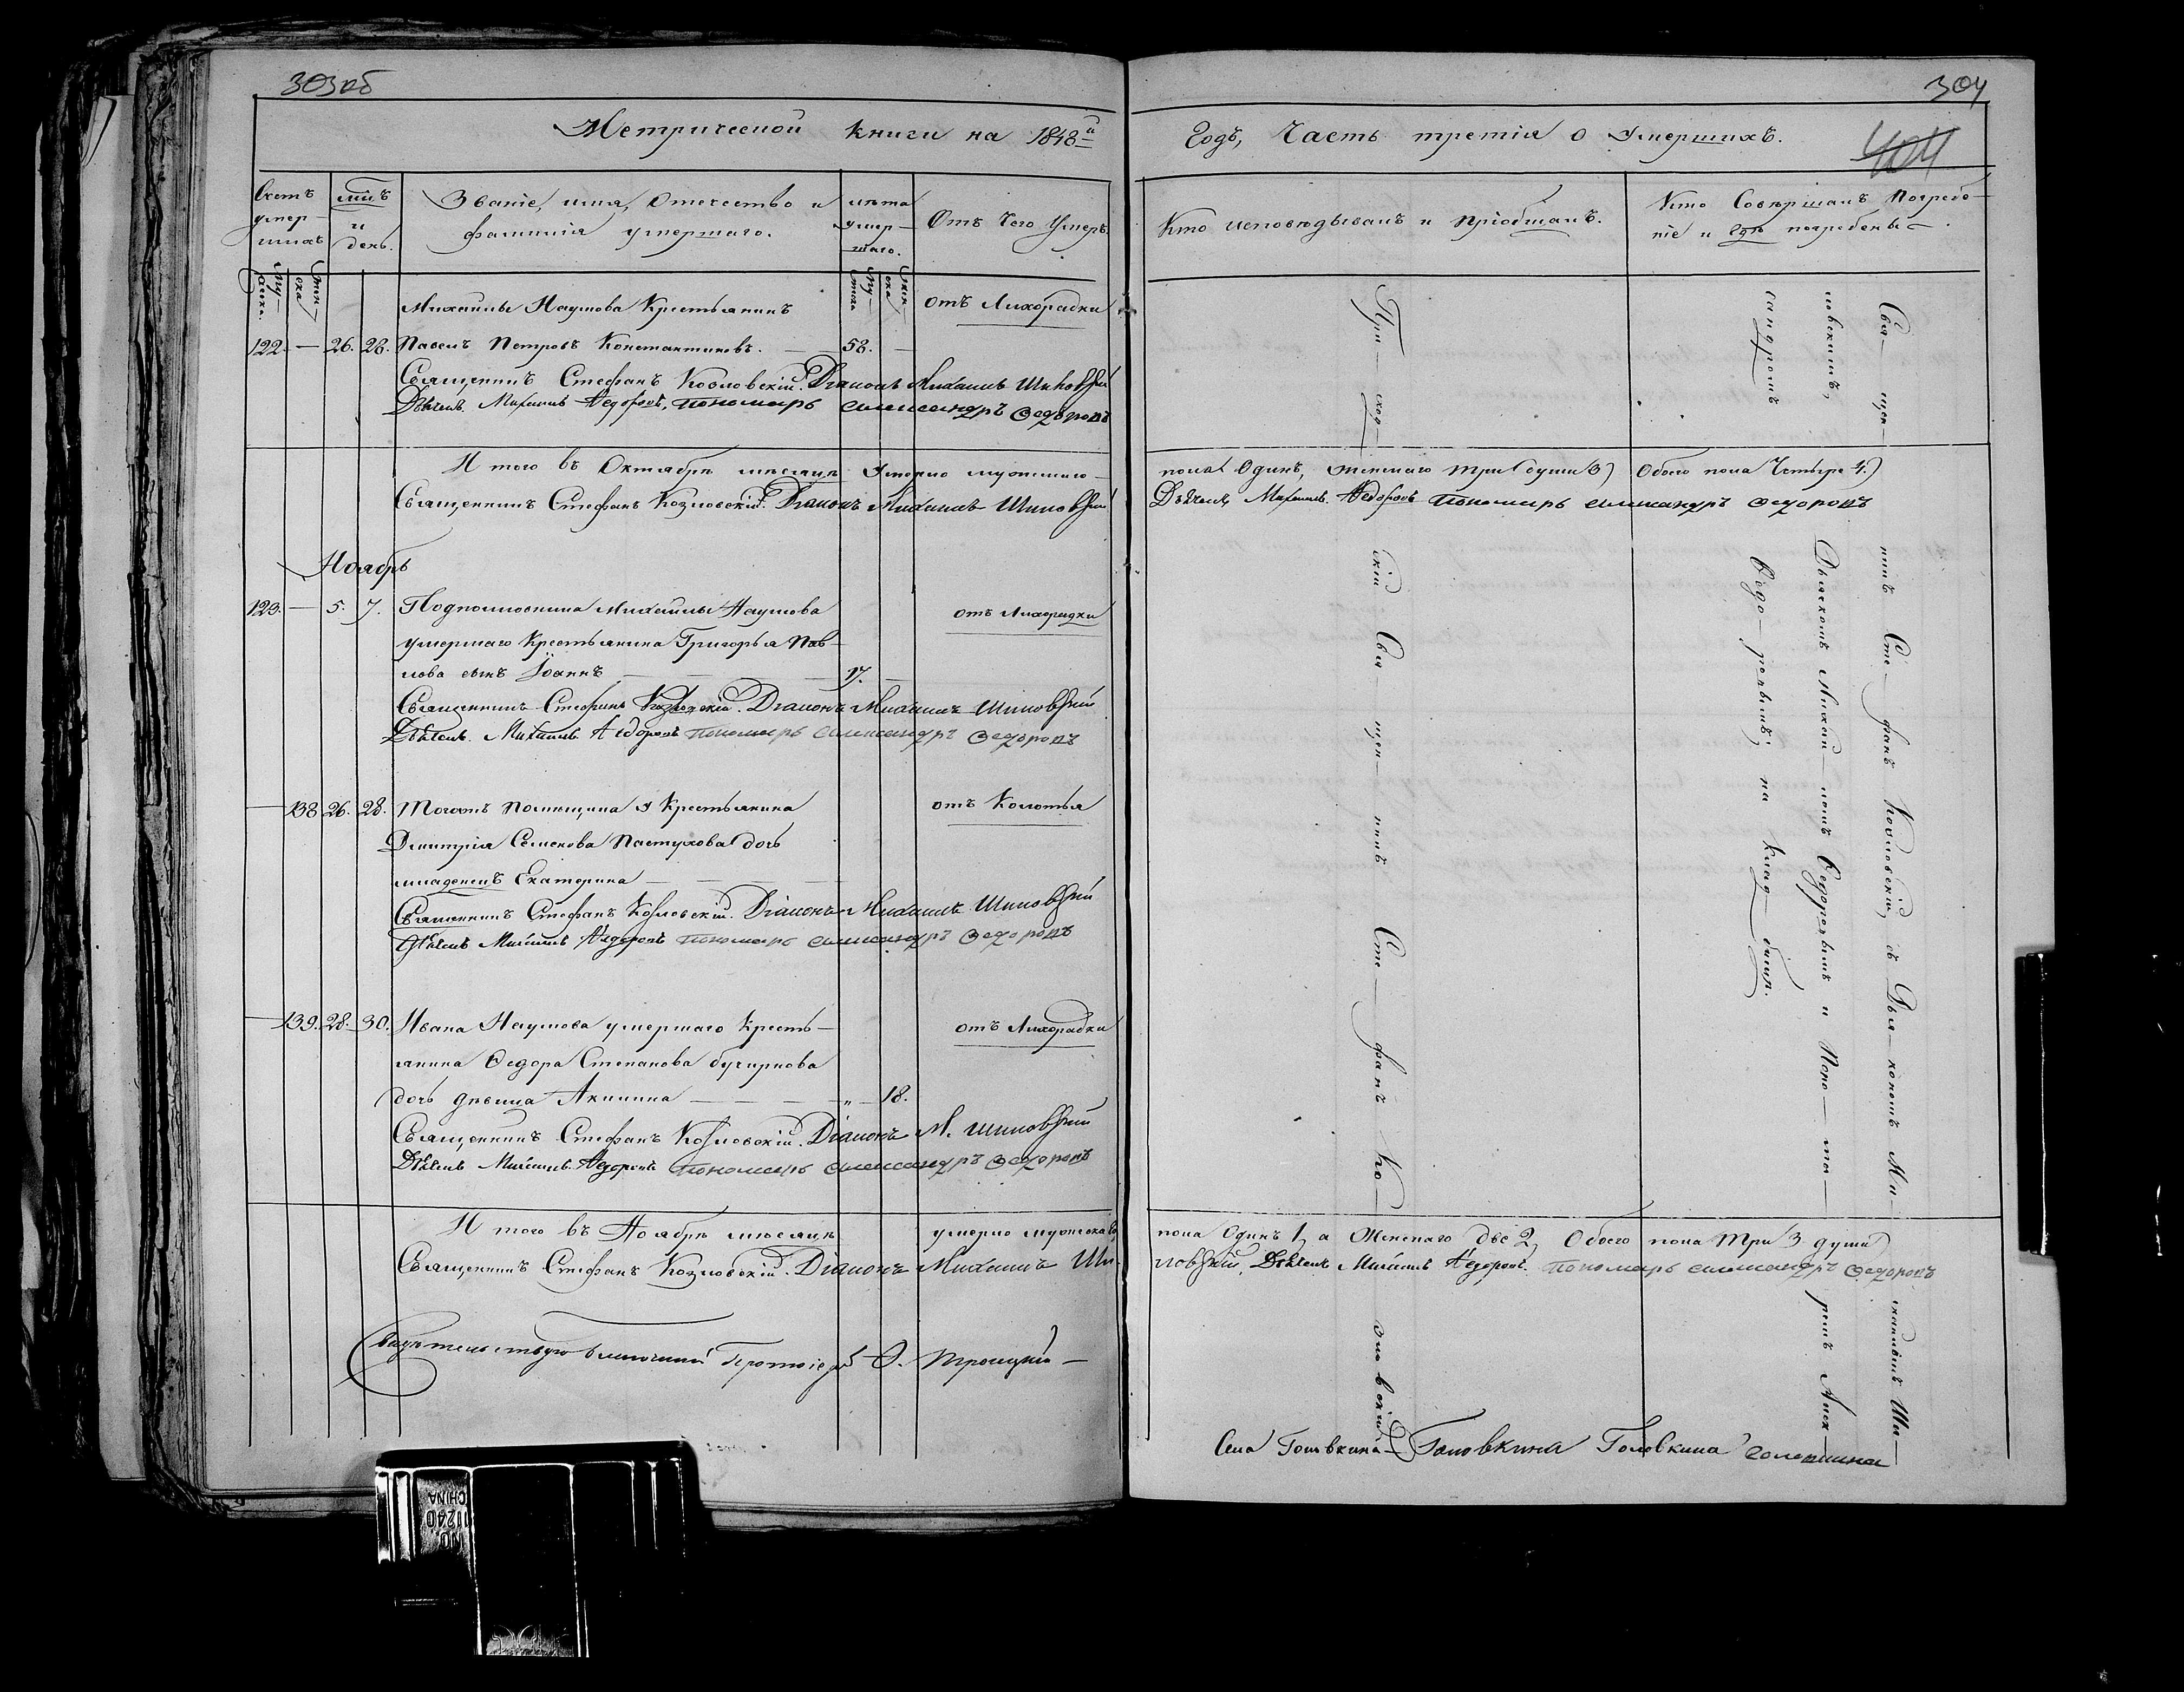 303об
Метрической книги на 1848й
Счетъ умер-шихъ
мцъ и день.
Званіе, имя, Отечество и фамилія умершаго.
лѣта умер-шаго.
Отъ Чего Умеръ.
Му-жска.
Жен-ска
Му-жска
Жен-ска
Михайлы Наумова Крестьянинъ
отъ Лихорадки
122. — 26. 28. Павелъ Петровъ Константиновъ. — 58. —
Священникъ Стефанъ Козловскій. Діаконъ Михаилъ Шиловскій
Дьячекъ Михаилъ Федоровъ, пономарь Александръ Федоровъ
И того въ Октябрѣ мѣсяцѣ Умерло мужескаго
Священникъ Стефанъ Козловскій. Діаконъ Михаилъ Шиловскій
Ноябрь
123. — 5. 7. Подполковника Михайлы Наумова
отъ Лихорадки
умершаго Крестьянина Григорья Пав-
лова сынъ Іоаннъ — — — 17. —
Священникъ Стефанъ Козловскій. Діаконъ Михаилъ Шиловскій
Дьячекъ Михаилъ Федоровъ пономарь Александръ Федоровъ
— 138 26. 28. Тогожъ помѣщика у Крестьянина
отъ Колотья
Дмитрія Семенова Пастухова дочь
младенецъ Екатерина — — —
Священникъ Стефанъ Козловскій. Діаконъ Михаилъ Шиловскій
Дьячекъ Михаилъ Федоровъ пономарь Александръ Федоровъ
— 139. 28. 30. Ивана Наумова умершаго Кресть-
отъ Лихорадки
янина Федора Степанова
дочь дѣвица Акилина — — — „ — 18.
Священникъ Стефанъ Козловскій. Діаконъ М. Шиловскій
Дьячекъ Михаилъ Федоровъ пономарь Александръ Федоровъ
И того въ Ноябрѣ мѣсяцѣ умерло мужеска
Священникъ Стефанъ Козловскій. Діаконъ Михаилъ Ши-
Троицкій —
304
404
Годъ, Часть третія о Умершихъ.
Кто исповѣдывалъ и пріобщалъ.
Кто Совершалъ Погребе-ніе и гдѣ погребены.
пола Одинъ, женскаго три (души 3) Обоего пола Четыре 4.)
Дьячекъ Михаилъ Федоровъ пономарь Александръ Федоровъ
пола Одинъ 1, а Женскаго двѣ 2, Обоего пола Три 3 души)
ловскій, Дьячекъ Михаилъ Федоровъ. пономарь Александръ Федоровъ
При-ход-скій Свя-щен-никъ Сте-фанъ Ко-зловскій
Свя-щен-никъ Сте-фанъ Козловскій, съ Дья-кономъ Ми-хаиломъ Ши-
ловскимъ, Дьячкомъ Михаи-ломъ Федоровымъ и Поно-маремъ Алек-
сандромъ Федо-ровымъ; на клад-бищѣ.
Села Головкина — Головкина Головкина Головкина